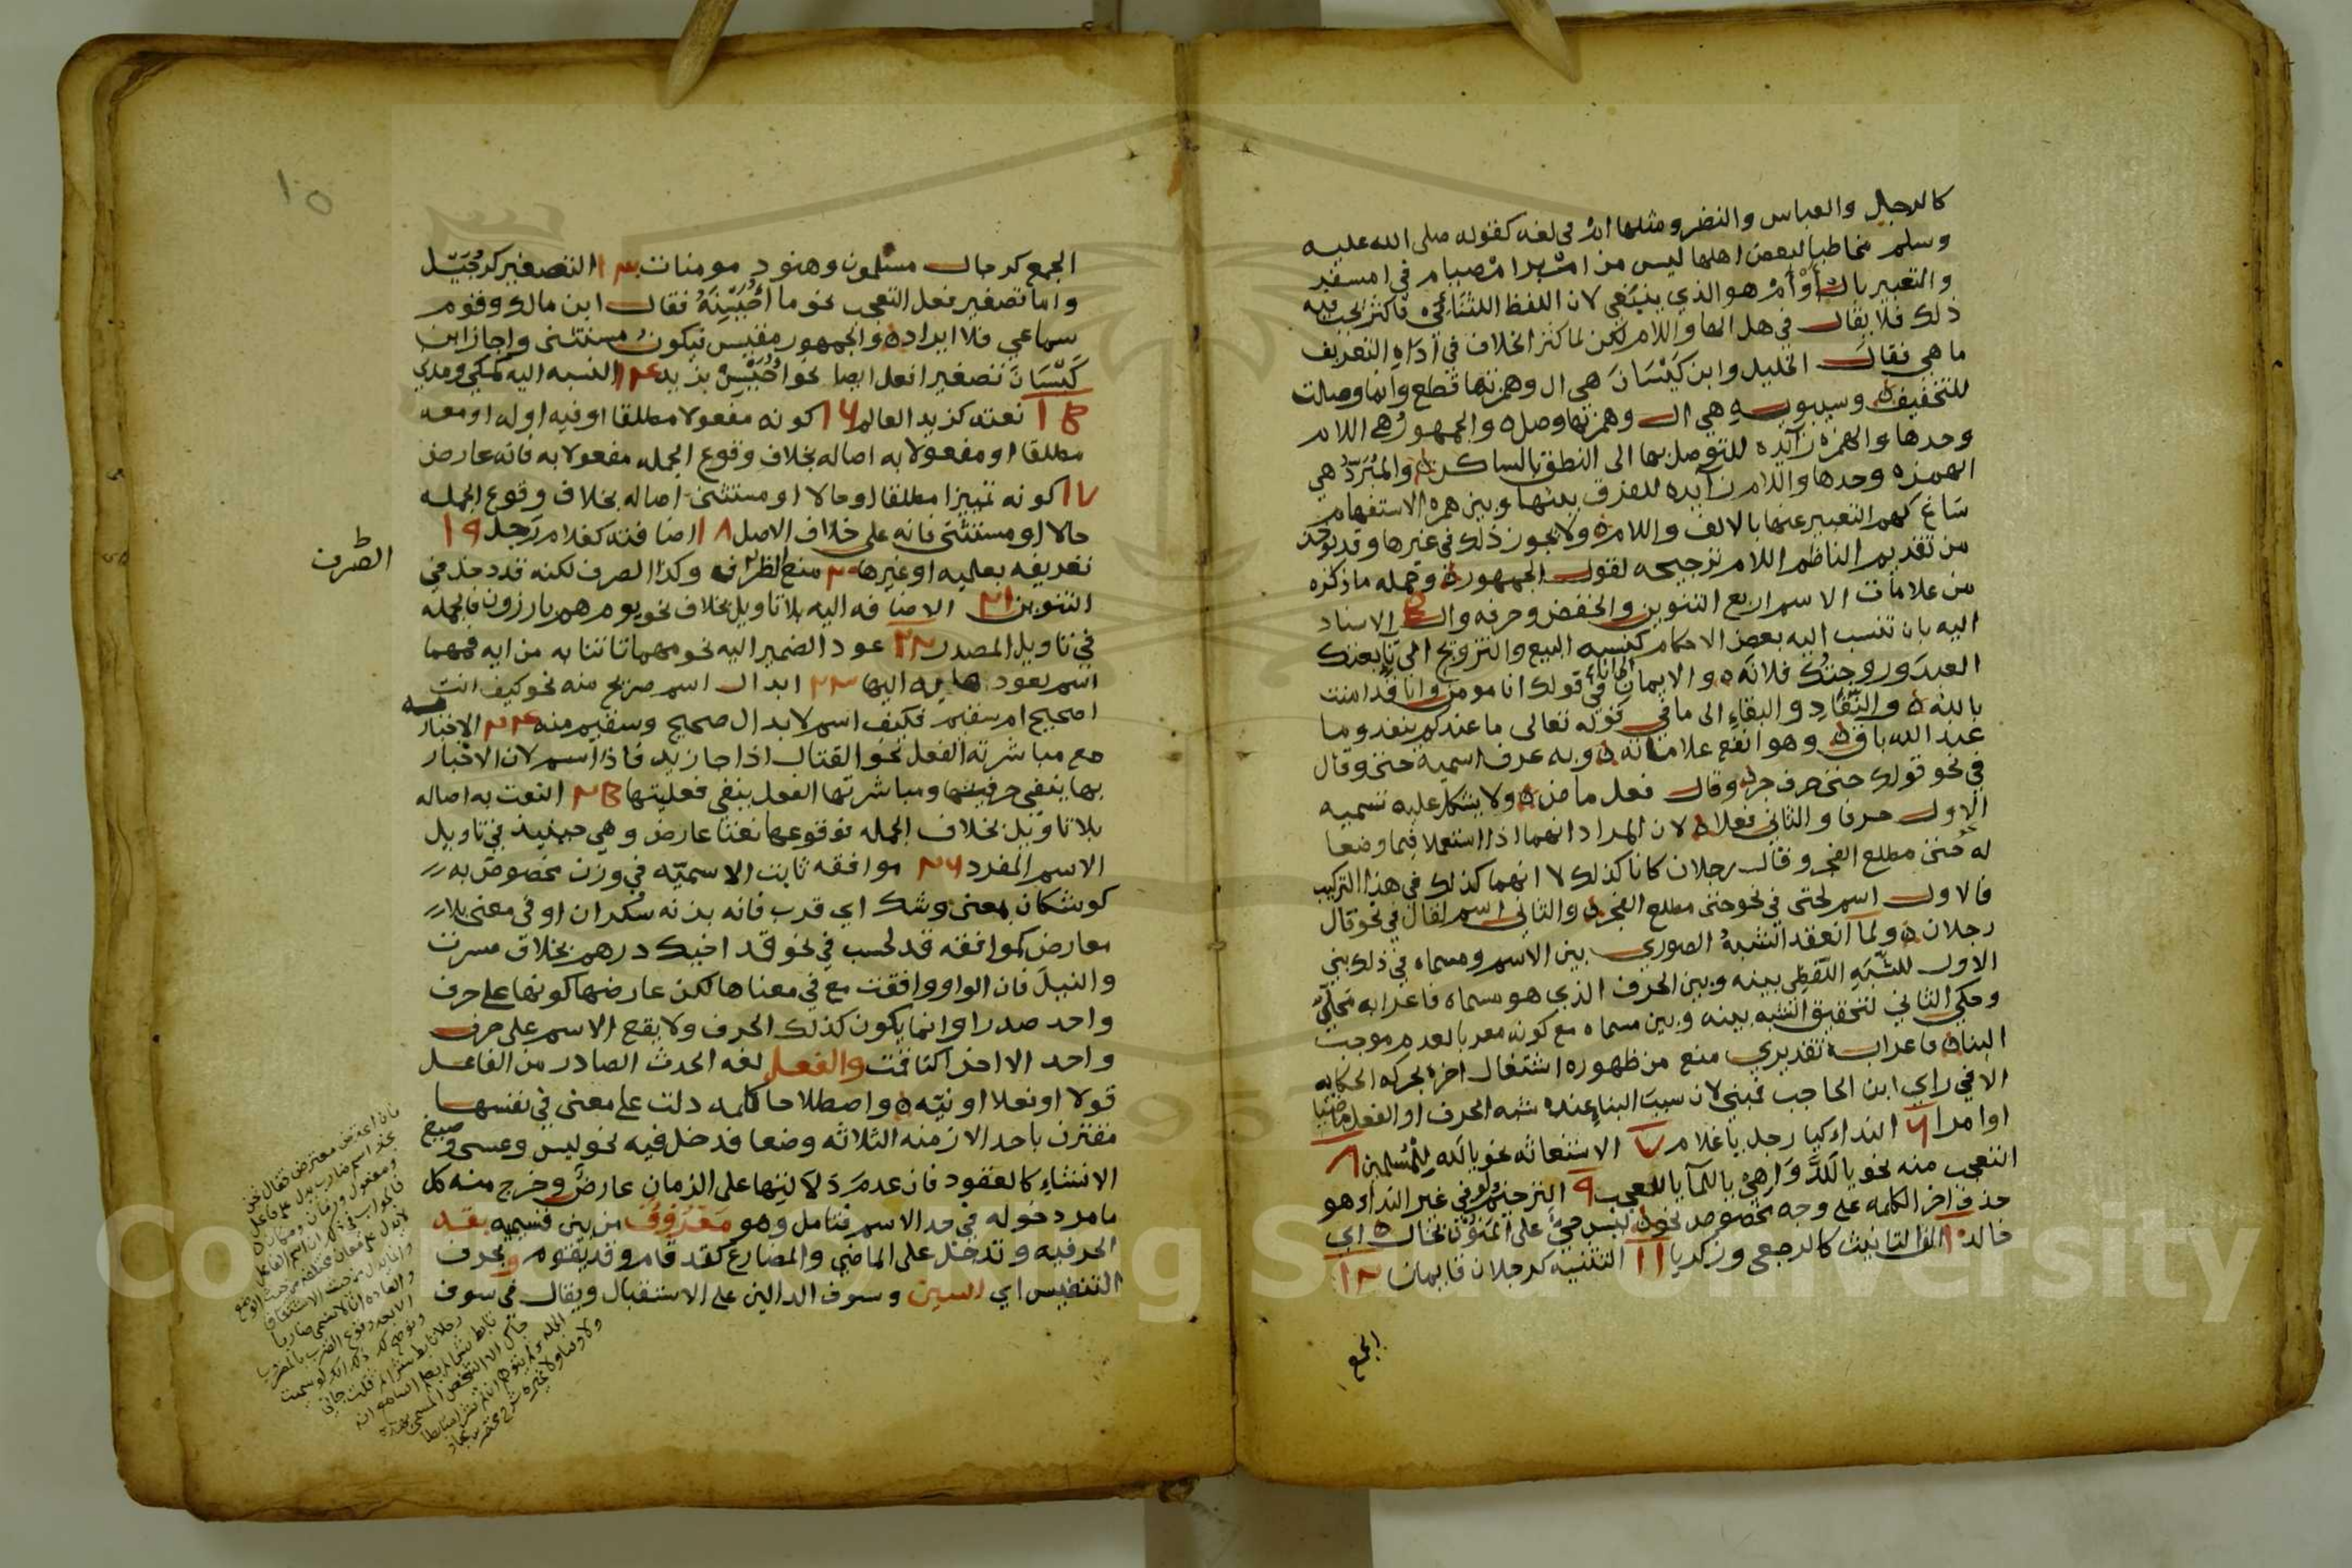 كالرجال والعباس والنضر ومثلها ام في لغه كقوله صلى الله عليه
وسلم مخاطبا لبعض اهلها ليس من امبر امصيام في امسفر
والتعبير بال أو أم هو الذي ينبغي لان اللفظ الثنائي فاكثر يحكى فيه
ذلك فلا يقال في هل الها واللام لكن لما كثر الخلاف في أداه التعريف
ما هي فقال الخليل وابن كَيْسَانَ هي ال وهمزتها قطع وانما وصلت
للتخفيف وسيبويه هي ال وهمزتها وصل والجمهور هي اللام
وحدها والهمزه زآئده للتوصل بها الى النطق بالساكن والمبرد هي
الهمزه وحدها واللام زآيده للفرق بينها وبين همزه الاستفهام
سَاغ لهم التعبير عنها بالالف واللام ولا يجوز ذلك في غيرها وقد يوخذ
من تقديم الناظم اللام ترجيحه لقول الجمهور وجمله ما ذكره
من علامات الاسم اربع التنوين والخفض وحرفه وال ٥ الاسناد
اليه بان تنسب اليه بعض الاحكام كنسبه البيع والتزويج الى تا بعتك
العبد وزوجتك فلانه والايمان الى انا في قولك انا مومن وانا قد امنت
بالله والنَّفَادِ والبقاءِ الى ما في قوله تعالى ما عندكم ينفد وما
عند الله باق وهو انفع علاماته وبه عرف اسمية حتى وقال
في نحو قولك حتى حرف جر وقال فعل ماض ولا يشكل عليه تسميه
الاول حرفا والثاني فعلا لان المراد انهما اذا استعملا فيما وضعا
له كحتى مطلع الفجر وقال رجلان كانا كذلك لا انهما كذلك في هذا التركيب
فالاول اسم لحتى في نحو حتى مطلع الفجر والثاني اسم لقال في نحو قال
رجلان ولما انعقد الشبهُ الصوري بين الاسم ومسماه في ذلك بني
الاول للشَّبَهِ اللفظي بينه وبين الحرف الذي هو مسماه فاعرابه محلي
وحكي الثاني لتحقيق الشبه بينه وبين مسماه مع كونه معربا لعدم موجب
البنا فاعرابه تقديري منع من ظهوره اشتغال اخره بحركه الحكايه
الا في راي ابن الحاجب فمبني لان سبب البناء عنده شبه الحرف او الفعل ماضيا
او امرا ٦ النداء كيا رجل يا غلام ٧ الاستغاثه نحو يا لَله لِلْمُسلمين ٨
التعجب منه نحو يا لَلدَّوَاهِيْ يا للمآ يا للعجب ٩ الترخيم ولو في غير النداء وهو
حذف اخر الكلمه على وجه مخصوص نحو ليس حيٌّ على المنون بخال اي
خالد ١٠ الف التانيث كالرجعى وزكريا ١١ التثنيه كرجلان قايمان ١٢
الجمع
١٥
الجمع كرجال مسلمون وهنود مومنات ١٣ التصغير كرُجَيْل
واما تصغير فعل التعجب نحو ما أُحَيْسِنَهُ فقال ابن مالك وقوم
سماعي فلا ايراد والجمهور مقيس فيكون مستثنى واجاز ابن
كَيْسَانَ تصغير افعل ايضا نحو أُحَيْسِنْ بزيد ١٤ النسبه اليه كمكي ومدني
١٥ نعته كزيد العالم ١٦ كونه مفعولا مطلقا او فيه او له او معه
مطلقا او مفعولا به اصاله بخلاف وقوع الجمله مفعولا به فانه عارض
١٧ كونه تمييزا مطلقا او حالا او مستثنى اصاله بخلاف وقوع الجمله
حالا او مستثنى فانه على خلاف الاصل ١٨ اضافته كغلام رَجل ١٩
تعريفه بعلميه او غيرها ٢٠ منع الظرف وكذا الصرف لكنه قد دخل في
الصرف
التنوين ٢١ الاضافه اليه بلا تاويل بخلاف نحو يوم هم بارزون فالجمله
في تاويل المصدر ٢٢ عود الضمير اليه نحو مهما تاتنا به من ايه فمهما
اسم لعود ها به اليها ٢٣ ابدال اسم صريح منه نحو كيف انت
اصحيح ام سقيم فكيف اسم لابدال صحيح وسقيم منه ٢٤ الاخبار به
مع مباشرته الفعل نحو القتال اذا جا زيد فاذا اسم لان الاخبار
بها ينفي حرفيتها ومباشرتها الفعل ينفي فعليتها ٢٥ النعت به اصاله
بلا تاويل بخلاف الجمله فوقوعها نعتا عارض وهي حينيذ في تاويل
الاسم المفرد ٢٦ موافقه ثابت الاسميّه في وزن مخصوص به
كوشكان بمعنى وشك اي قرب فانه بزنه سُكران او في معنى بلا
معارض كموافقه قد لحسب في نحو قد اخيك درهم بخلاف مسرت
والنيلَ فان الواو وافقت مع في معناها لكن عارضها كونها على حرف
واحد صدرا وانما يكون كذلك الحرف ولا يقع الاسم على حرف
واحد الا اخرا كتا قمت والفعل لغه الحدث الصادر من الفاعل
قولا او فعلا او نيّه واصطلاحا كلمه دلت على معنى في نفسها
مقترن باحد الازمنه الثلاثه وضعا فدخل فيه نحو ليس وعسى وصيغ
الانشاء كالعقود فان عدم دَلَالِتها على الزمان عارض وخرج منه كل
ما مر دخوله في حد الاسم فتامل وهو مَعْرُوفٌ من بين قسيميه بقد
الحرفيه وتدخل على الماضي والمضارع كقد قام وقد يقوم وبحرف
التنفيس اي السين وسوف الدالين على الاستقبال ويقال في سوف
فان اعترض معترض فقال نحن
نجد اسم ضارب يدل على فاعل
ومفعول وزمان ومكان